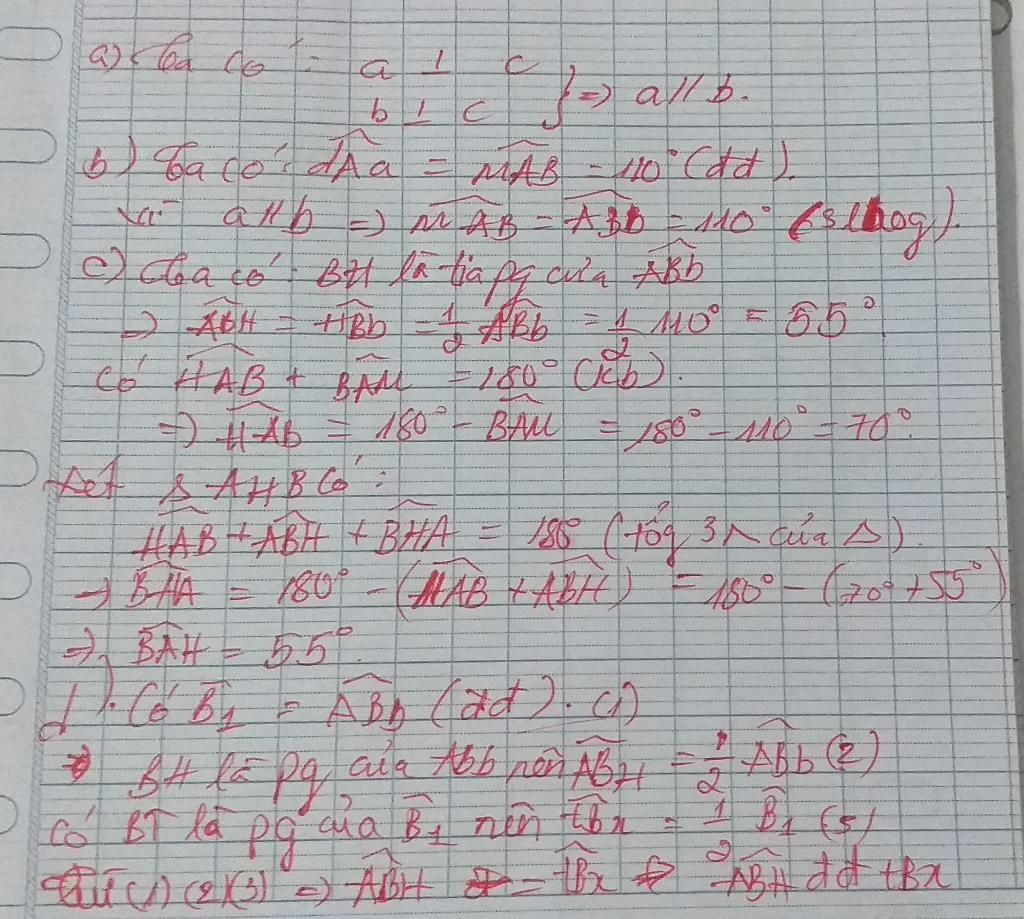 a) Ta có: a ⊥ c
b ⊥ c } => a // b.
b) Ta có: dAa = MAB = 110° (đđ).
Vì a // b => MAB = ABb = 110° (slog).
c) Ta có: BH là tia pg của ABb
=> ABH = HBb = 1/2 ABb = 1/2 110° = 55°
Có HAB + BAM = 180° (kb).
=> HAB = 180° - BAM = 180° - 110° = 70°.
Xét Δ AHB có:
HAB + ABH + BHA = 180 (tổg 3 ^ của Δ).
=> BHA = 180° - (HAB + ABH) = 180° - (70° + 55°)
=> BAH = 55°.
d). Có B1 = ABb (đđ). (1)
BH là pg của Abb nên ABH = 1/2 ABb (2)
Có BT là pg của B1 nên tBx = 1/2 B1 (3)
Từ (1) (2) (3) => ABH = tBx => ABH đđ tBx